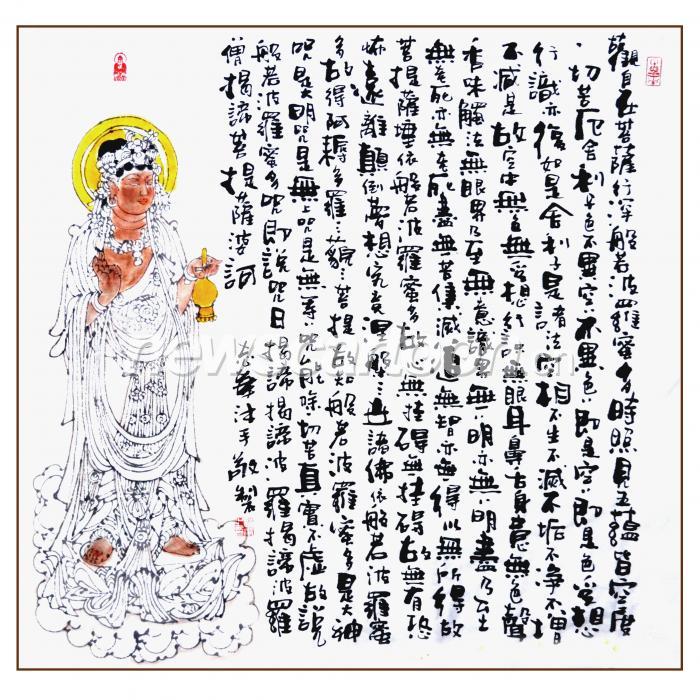 觀自在菩薩行深般若波羅蜜多時照見五蘊皆空度
一切苦厄舍利子色不異空空不異色色即是空空即是色受想
行識亦復如是舍利子是諸法空相不生不滅不垢不净不增
不减是故空中無色無受想行識無眼耳鼻舌身意無色聲
香味觸法無眼界乃至無意識界無無明亦無無明盡乃至
無老死亦無老死盡無苦集滅道無智亦無得以無所得故
菩提薩埵依般若波羅蜜多故心無挂礙無挂礙故無有恐
怖遠離顛倒夢想究竟涅槃三世諸佛依般若波羅蜜
多故得阿耨多羅三藐三菩提故知般若波羅蜜多是大神
咒是大明咒是無上咒是無等等咒能除一切苦真實不虛故說
般若波羅蜜多咒即說咒曰揭諦揭諦波羅揭諦波羅
僧揭諦菩提薩婆訶
沐手敬製
newscartoon.cn